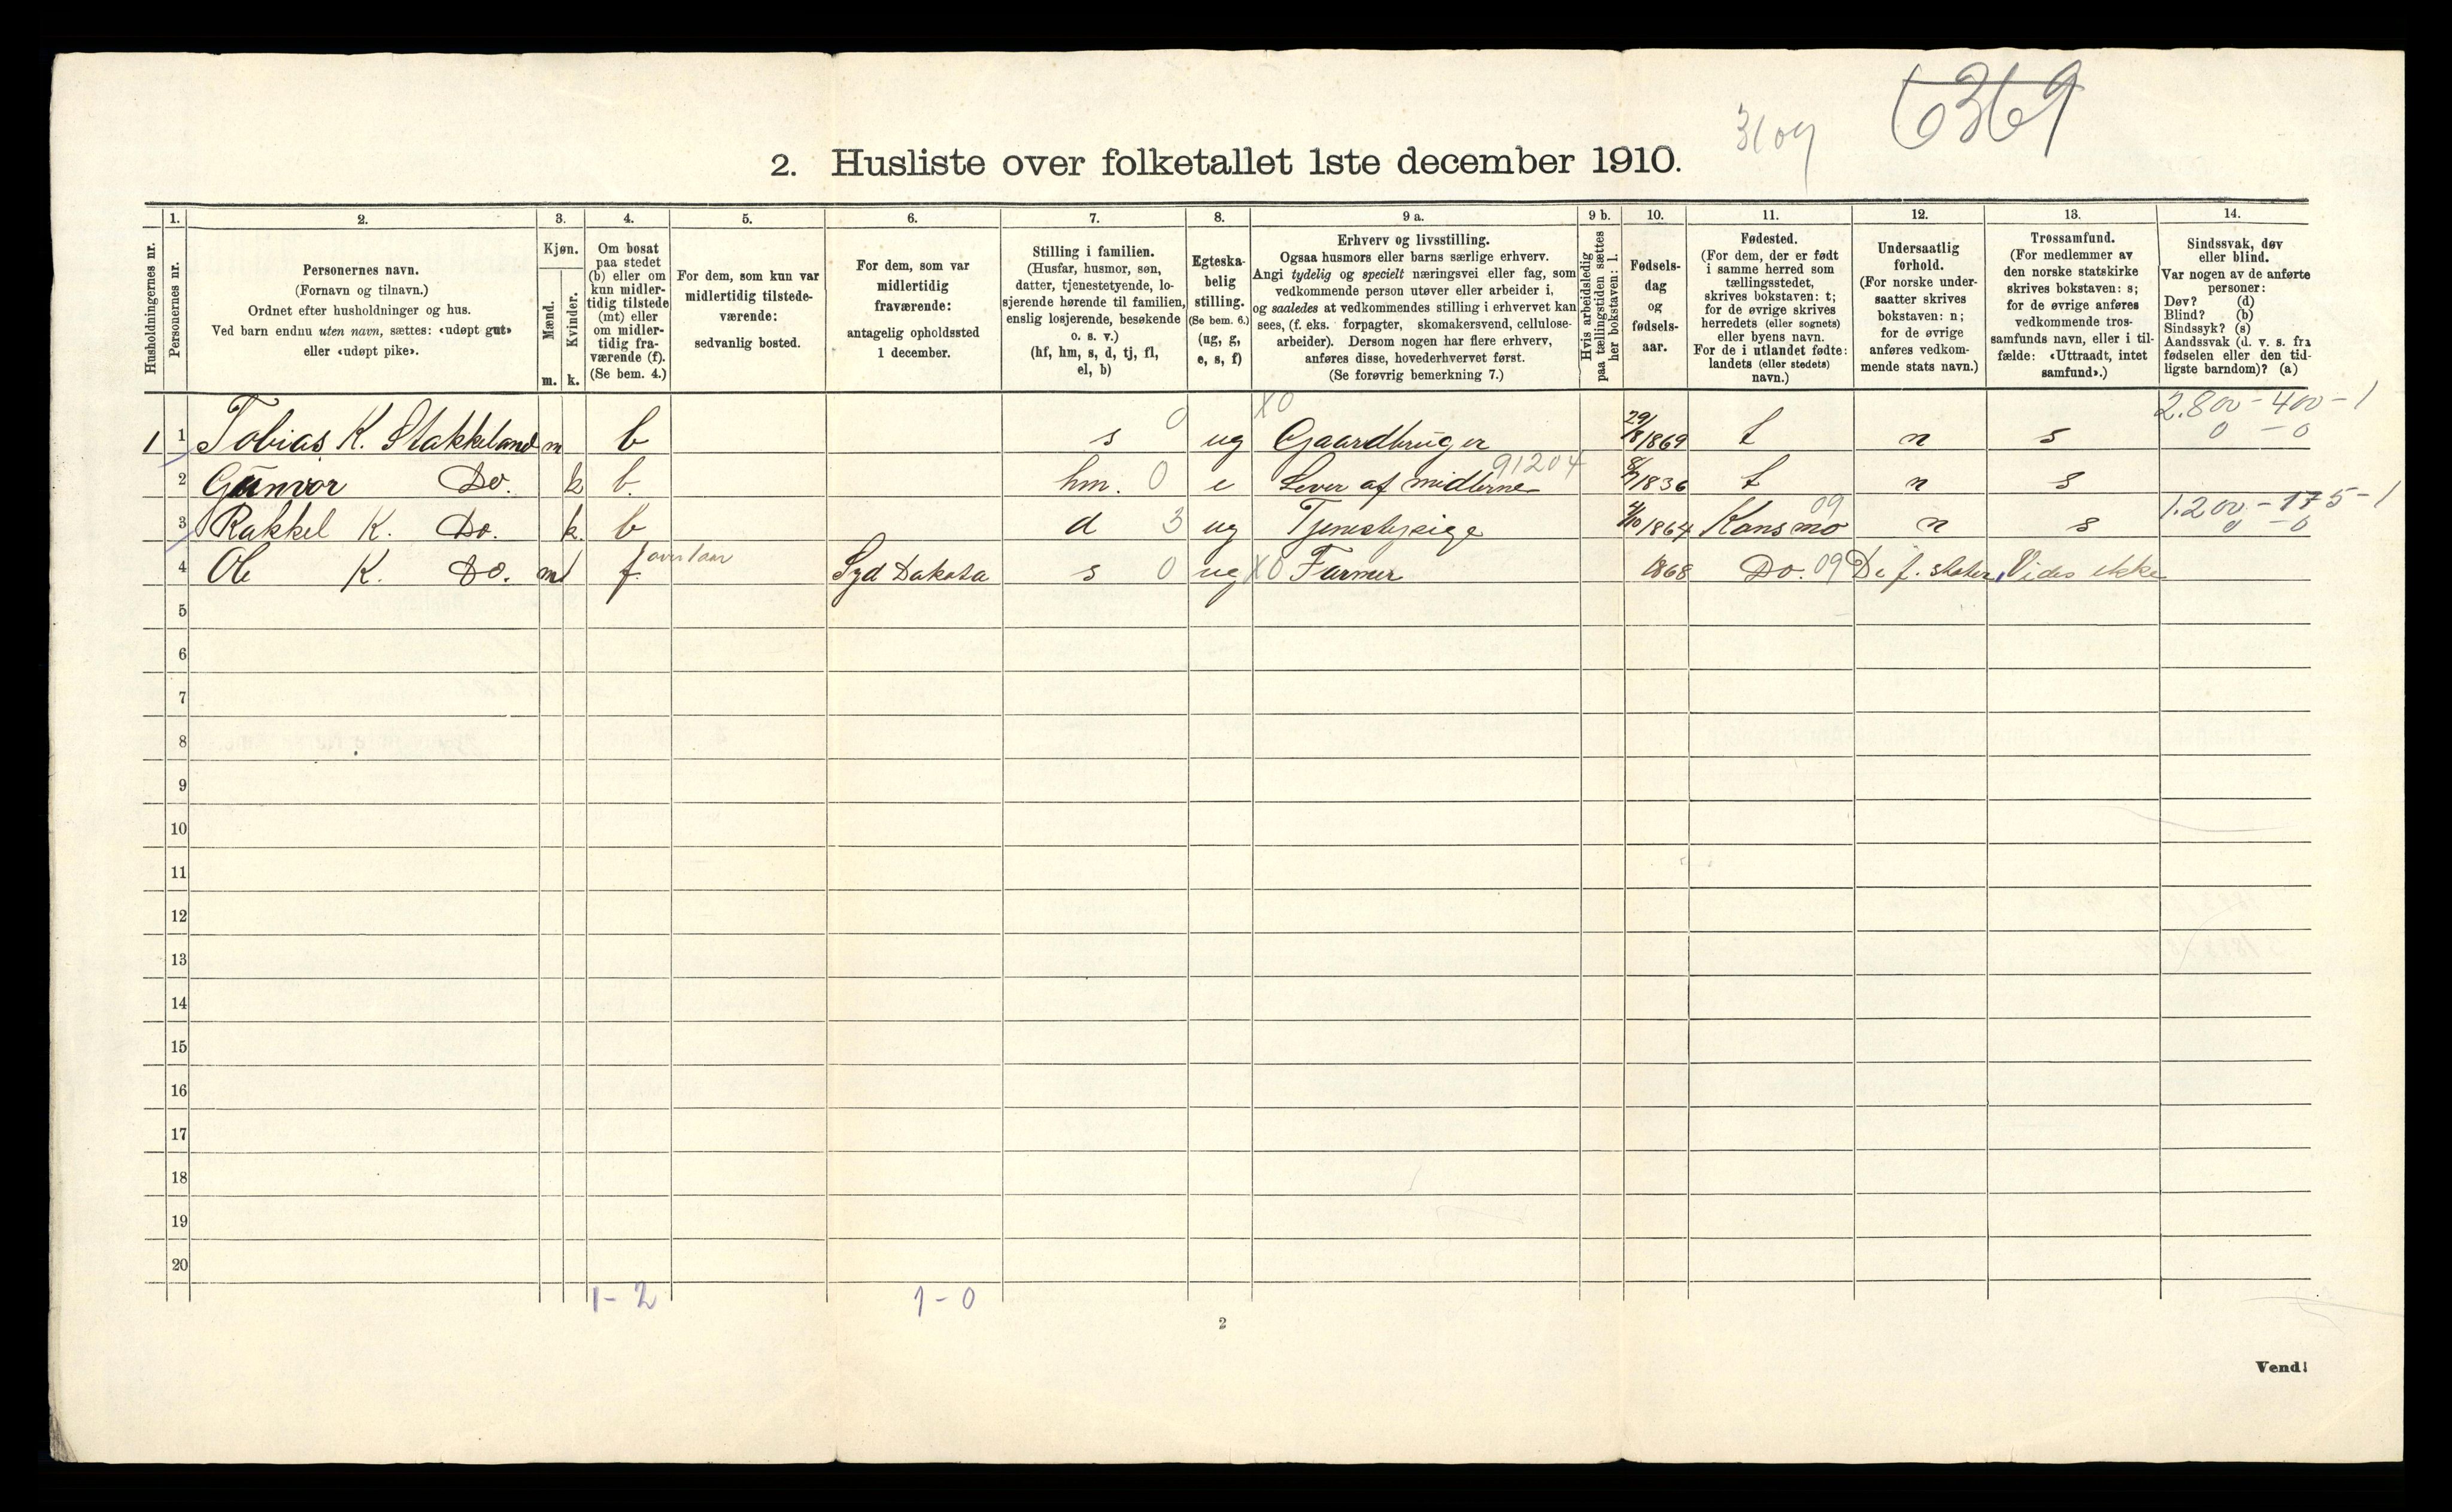 6369
3109
2. Husliste over folketallet 1ste december 1910.
Husholdningernes nr.
1.
Personernes nr.
2.
Personernes navn.
(Fornavn og tilnavn.)
Ordnet efter husholdninger og hus.
Ved barn endnu uten navn, sættes: «udøpt gut»
eller «udøpt pike».
3.
Kjøn.
Mænd.
Kvinder.
m. k.
4.
Om bosat
paa stedet
(b) eller om
kun midler-
tidig tilstede
(mt) eller
om midler-
tidig fra-
værende (f).
(Se bem. 4.)
5.
For dem, som kun var
midlertidig tilstede-
værende:
sedvanlig bosted.
6.
For dem, som var
midlertidig
fraværende:
antagelig opholdssted
1 december.
7.
Stilling i familien.
(Husfar, husmor, søn,
datter, tjenestetyende, lo-
sjerende hørende til familien,
enslig losjerende, besøkende
o. s. v.)
(hf, hm, s, d, tj, fl,
el, b)
8.
Egteska-
belig
stilling.
(Se bem. 6.)
(ug, g,
e, s, f)
9 a.
Erhverv og livsstilling.
Ogsaa husmors eller barns særlige erhverv.
Angi tydelig og specielt næringsvei eller fag, som
vedkommende person utøver eller arbeider i,
og saaledes at vedkommendes stilling i erhvervet kan
sees, (f. eks. forpagter, skomakersvend, cellulose-
arbeider). Dersom nogen har flere erhverv,
anføres disse, hovederhvervet først.
(Se forøvrig bemerkning 7.)
9 b.
Hvis arbeidsledig
paa tællingstiden sættes
her bokstaven: l.
10.
Fødsels-
dag
og
fødsels-
aar.
11.
Fødested.
(For dem, der er født
i samme herred som
tællingsstedet,
skrives bokstaven: t;
for de øvrige skrives
herredets (eller sognets)
eller byens navn.
For de i utlandet fødte:
landets (eller stedets)
navn.)
12.
Undersaatlig
forhold.
(For norske under-
saatter skrives
bokstaven: n;
for de øvrige
anføres vedkom-
mende stats navn.)
13.
Trossamfund.
(For medlemmer av
den norske statskirke
skrives bokstaven: s;
for de øvrige anføres
vedkommende tros-
samfunds navn, eller i til-
fælde: «Uttraadt, intet
samfund».)
14.
Sindssvak, døv
eller blind.
Var nogen av de anførte
personer:
Døv? (d)
Blind? (b)
Sindssyk? (s)
Aandssvak (d. v. s. fra
fødselen eller den tid-
ligste barndom)? (a)
X0 2.800 - 400 - 1
1 1 Tobias K. Stakkeland m b s 0 ug Gaardbruger 29/8 1869 t n s 0 - 0
2 Gunvor Do. k b. hm. 0 e Lever af midlerne 91204 1836 t n s
1.200 - 175 - 1
3 Rakkel K. Do. k. b d 3 ug Tjenestepige 4/10 1864 Konsmo 09 n s 0 - 0
4 Ole K. Do. m f. over 1 aar Syd Dakota s 0 ug X0 Farmer 1868 Do. 09 De f. stater Vides ikke
5
6
7
8
9
10
11
12
13
14
15
16
17
18
19
20
1 - 2 1 - 0
2
Vend!